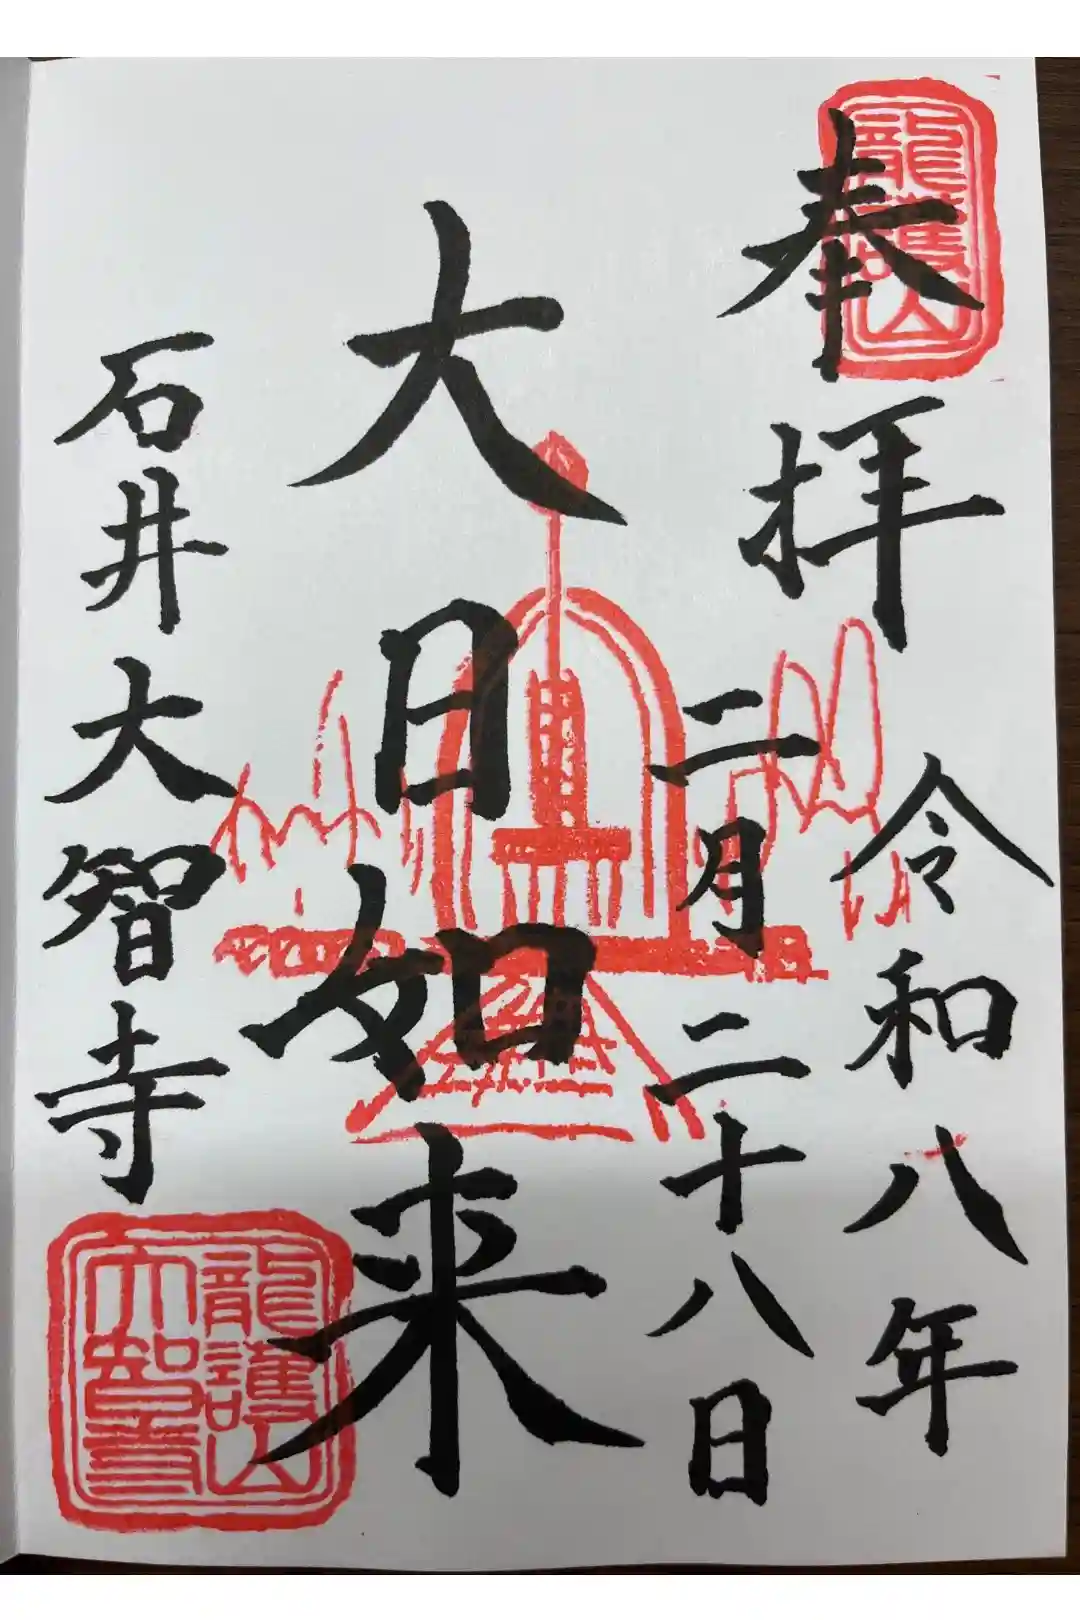 奉拝
龍護山
令和八年
二月二十八日
大日如来
石井大智寺
龍護山
大智寺